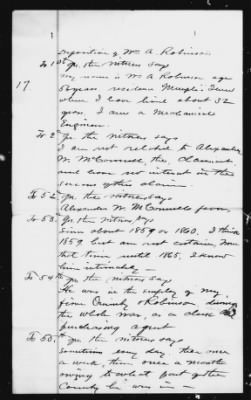 Deposition of Wm A Robinson
To 1st ye the Witness Says
17.
my name is Wm A Robinson age
50 years residence Memphis Tenn
where I have lived about 32
years, I am a Mechanical
Engineer.
To 2 ye the witness says
I am not related to Alexander
W. McConnell, the, Claimant,
and have no interest in the
success of this claim.
To 52 ye the witness Says
Alexander W McConnells
To 53. ye the witness Says
Since about 1859 or 1860. I think
1859 but am not certain, From
that time until 1865, I knew
him intimately
To 54th ye the witness Say
He was in the employ of my
firm & Robinson during
the whole war, as a clerk &
purchasing agent
To 55. ye the witness says
Sometimes every day, then once
a week, then once a month
owing to what part of the
County he was in —